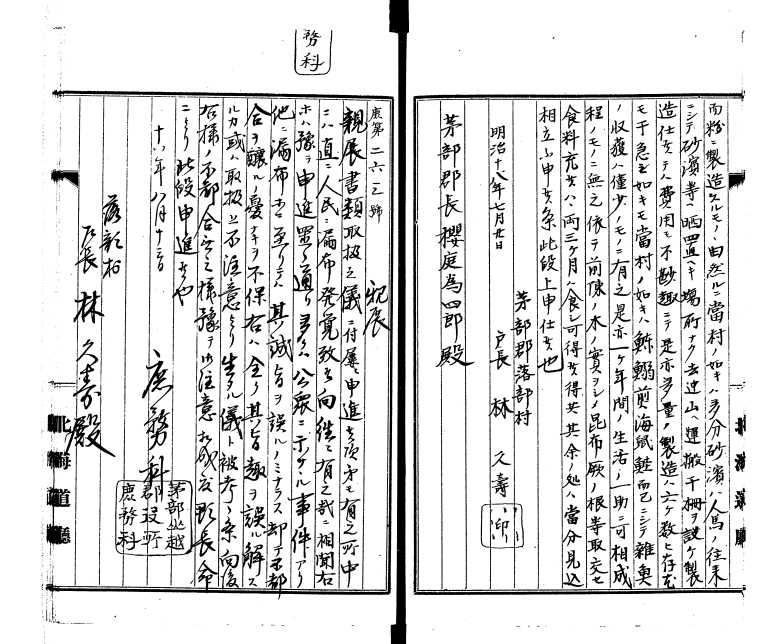 而粉ニ製造スルモノヽ由然ルニ當村ノ如キハ多分砂濱ハ人馬ノ往来
ニシテ砂濱等ハ晒置ヘキ場所ナク去迚山ヘ運搬干柵ヲ設ケ製
造仕候テハ費用モ不尠趣ニテ是亦多量ノ製造ハ六ケ敷ト存候
モ于急ニ如キモ當村ノ如キハ鰊鰯煎海鼠鮭而已ニシテ雑魚
ノ収獲ハ僅少ノモノニ有之是亦一ケ年間ノ生活ノ一助ニ可相成
程ノモノニ無之依テ前陳ノ木ノ實ヲシ昆布蕨ノ根等取交セ
食料充候ハヽ両三ケ月ハ食シ可得候得共其余ノ処ハ當分見込
相立不申候条此段上申仕候也
明治十八年七月廿日
茅部郡落部村
戸長 林 久壽 印
茅部郡長櫻庭為四郎殿
務科
庶第二六二号 親展
親展書類取扱之儀ニ付屢申進候項等モ有之所中
ニハ直ニ人民ニ漏布発覚致候向往々有之哉ニ相聞右
ホハ豫テ申進置候通リ多クハ公衆ニ示ケル事件アリ
他ニ漏布候ニ至リテハ其誠旨ヲ誤ルノミナラス却テ不都
合ヲ醸ルノ憂ナキヲ不保右ハ全ク其旨趣ヲ誤解ス
ルカ或ハ取扱上不注意ヨリ生タル儀ト被考候条向後
右様ノ不都合無之様豫テ御注意相成度郡長命
ニヨリ此段申進候也
十八年八月十三日
庶務科
茅部山越
郡役所
庶務科
落部村
戸長 林久壽殿
北海道廳
北海道廳